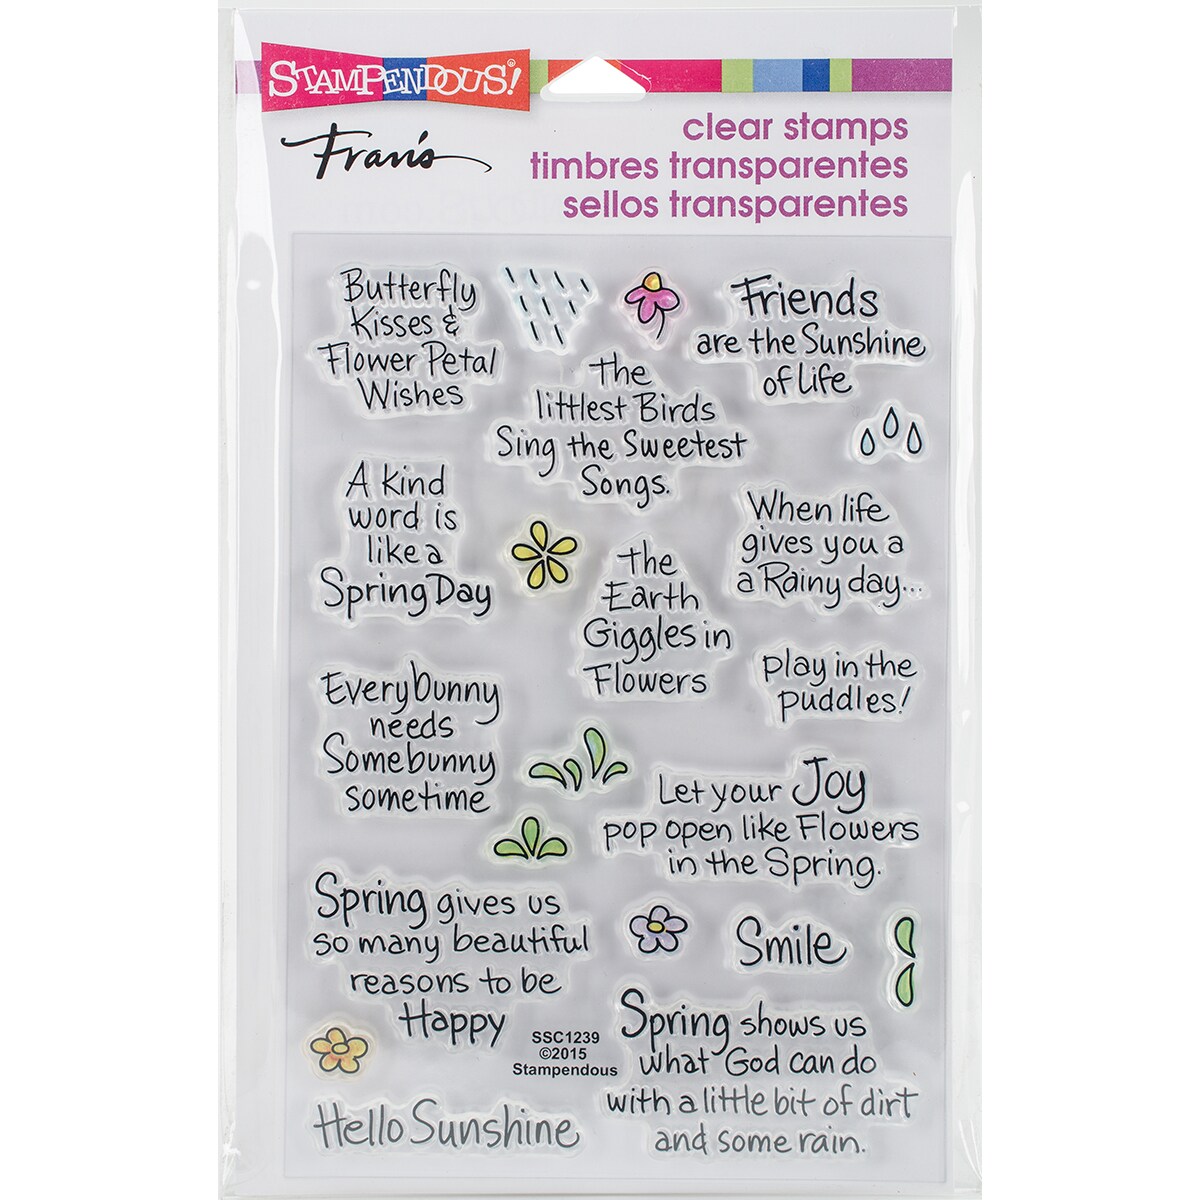 STAMPENDOUS!®
Fran's
clear stamps
timbres transparentes
sellos transparentes
Butterfly
Kisses &
Flower Petal
Wishes
Friends
are the Sunshine
of Life
The
littlest Birds
Sing the Sweetest
Songs.
A kind
word is
like a
Spring Day
When life
gives you a
a Rainy day...
The
Earth
Giggles in
Flowers
play in the
puddles!
Everybunny
needs
Somebunny
sometime
Let your Joy
pop open like Flowers
in the Spring.
Spring gives us
so many beautiful
reasons to be
Happy
Smile
SSC1239
©2015
Stampendous
Spring shows us
what God can do
with a little bit of dirt
and some rain.
Hello Sunshine